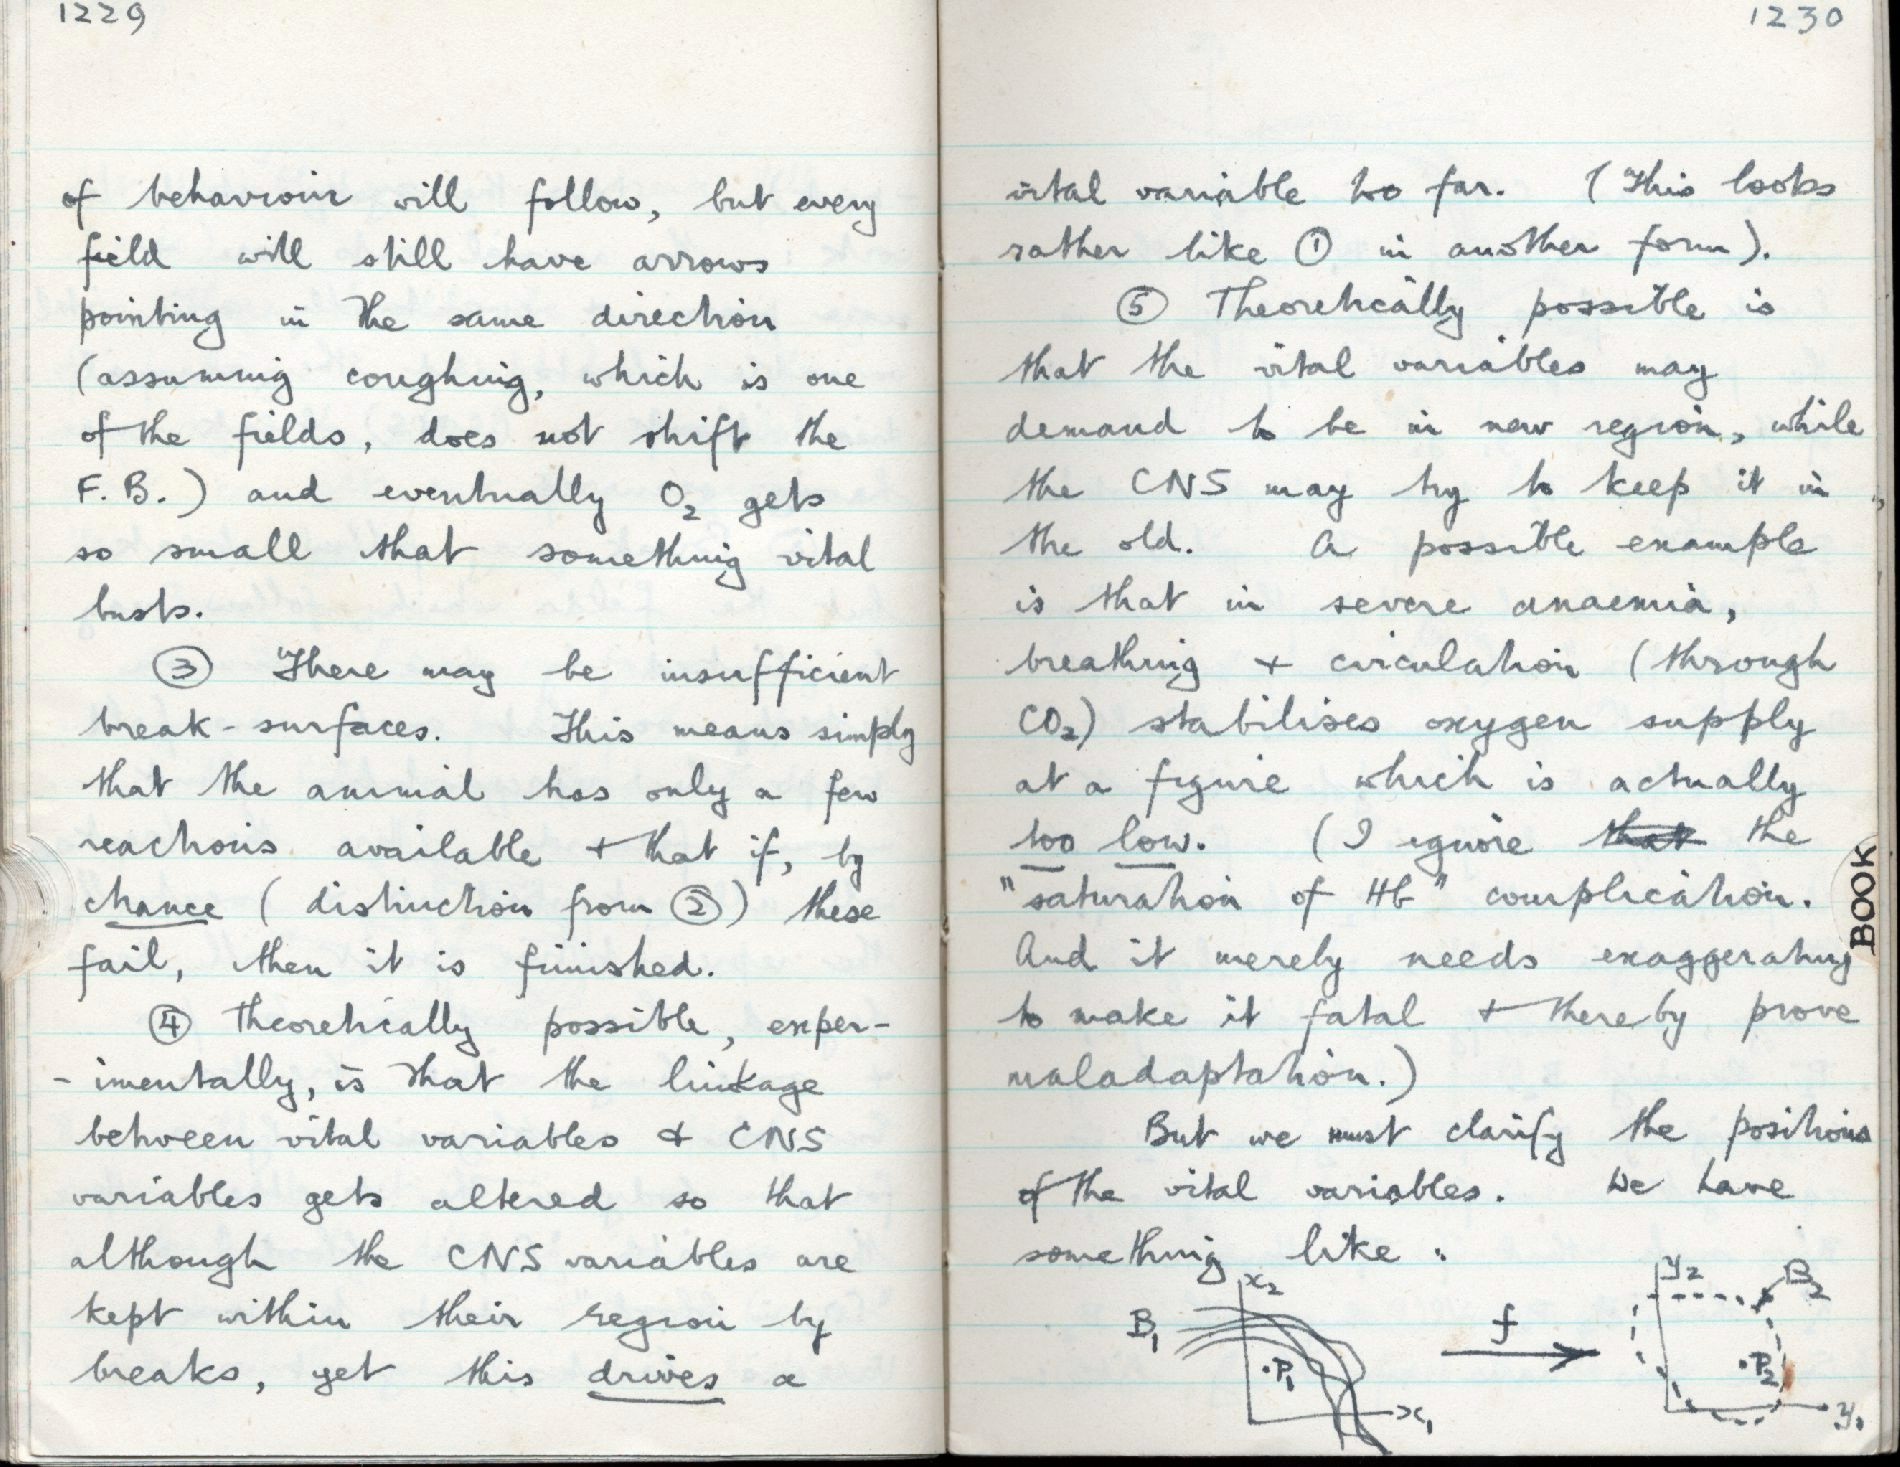 1229
of behaviour will follow, but every
field will still have arrows
pointing in the same direction
(assuming coughing, which is one
of the fields, does not shift the
F.B.) and eventually O₂ gets
so small that something vital
busts.
③ There may be insufficient
break-surfaces. This means simply
that the animal has only a few
reactions available + that if, by
chance (distinction from ②) these
fail, then it is finished.
④ Theoretically possible, exper-
-imentally, is that the linkage
between vital variables & CNS
variables gets altered so that
although the CNS variables are
kept within their region by
breaks, yet this drives a
1230
vital variable too far. (This looks
rather like ① in another form).
⑤ Theoretically possible is
that the vital variables may
demand to be in new region, while
the CNS may try to keep it in
the old. A possible example
is that in severe anaemia,
breathing + circulation (through
CO₂) stabilises oxygen supply
at a figure which is actually
too low. (I ignore that the
"saturation of Hb" complication.
And it merely needs exaggerating
to make it fatal + thereby prove
maladaptation.)
But we must clarify the positions
of the vital variables. We have
something like :
B₁ x₂ P₁ x₁
f
y₂ B₂ P₂ y₁
BOOK